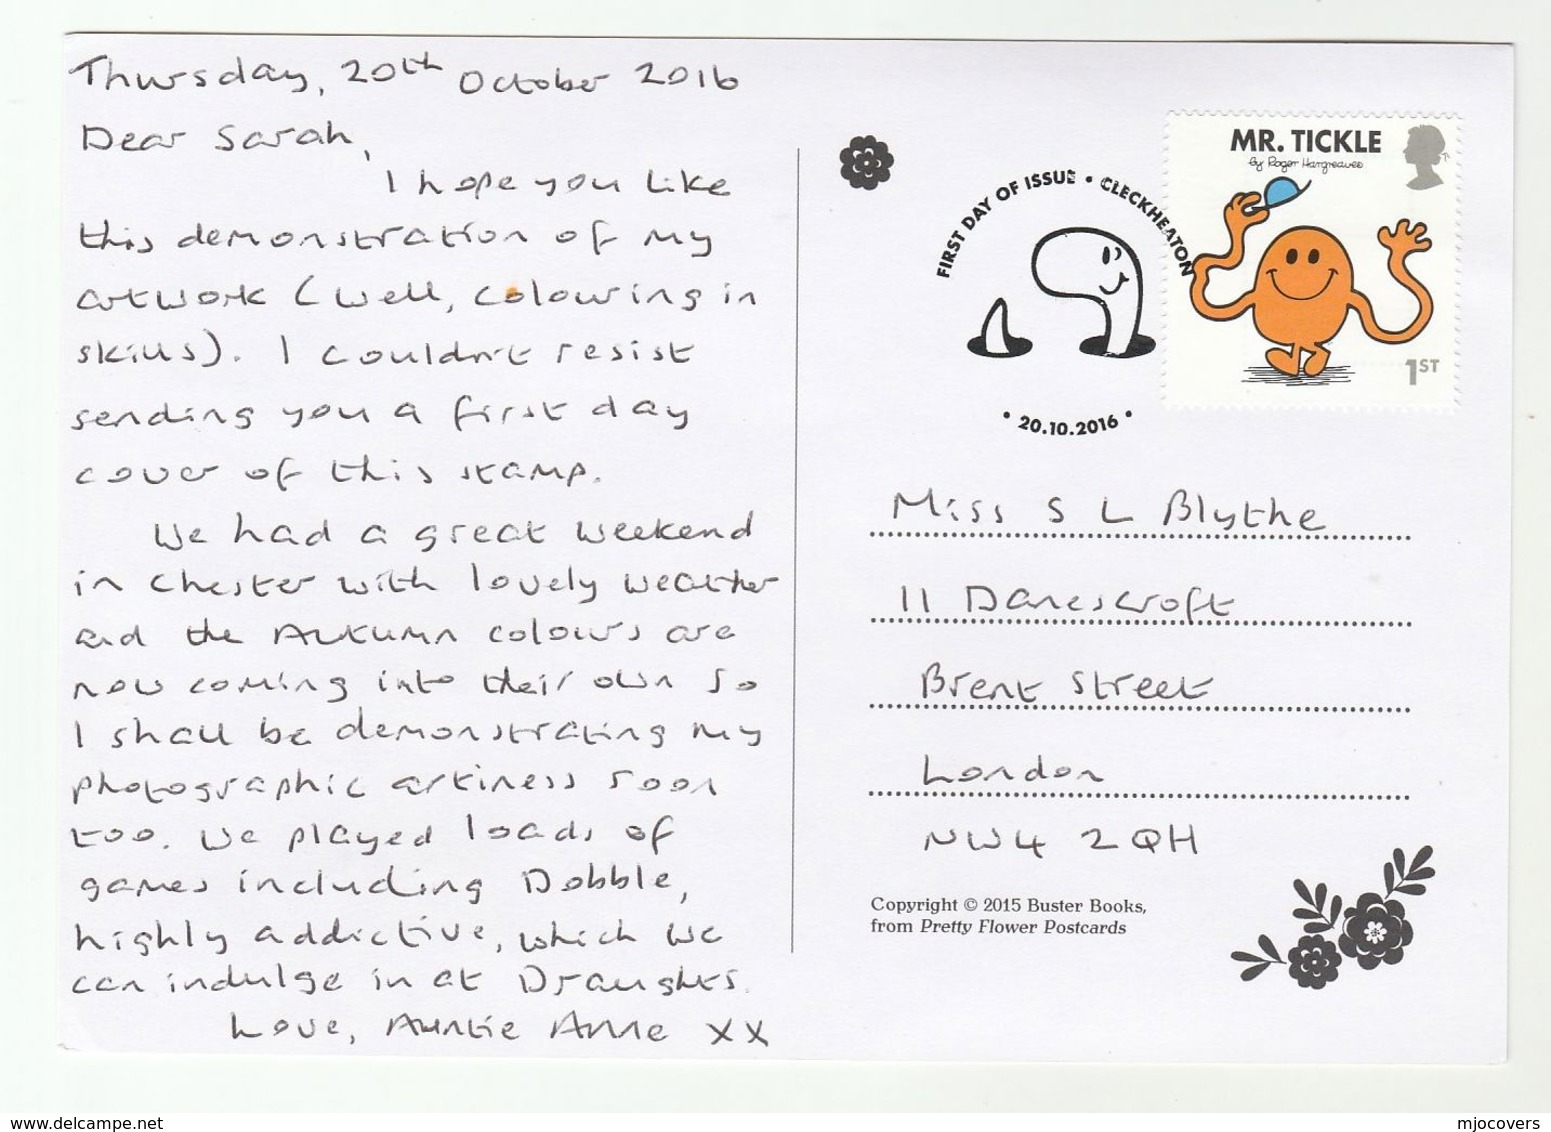 Thursday, 20th October 2016
Dear Sarah,
I hope you like
this demonstration of my
artwork (well, colouring in
skills). I couldn't resist
sending you a first day
cover of this stamp.
We had a great weekend
in Chester with lovely weather
and the Autumn colours are
now coming into their own so
I shall be demonstrating my
photographic artiness soon
too. We played loads of
games including Dobble,
highly addictive, which we
can indulge in at Draughts.
Love, Auntie Anne xx
FIRST DAY OF ISSUE • CLECKHEATON
• 20.10.2016 •
MR. TICKLE
by Roger Hargreaves
1ST
Miss S L Blythe
11 Danescroft
Brent Street
London
NW4 2QH
Copyright © 2015 Buster Books,
from Pretty Flower Postcards
www.delcampe.net
mjocovers